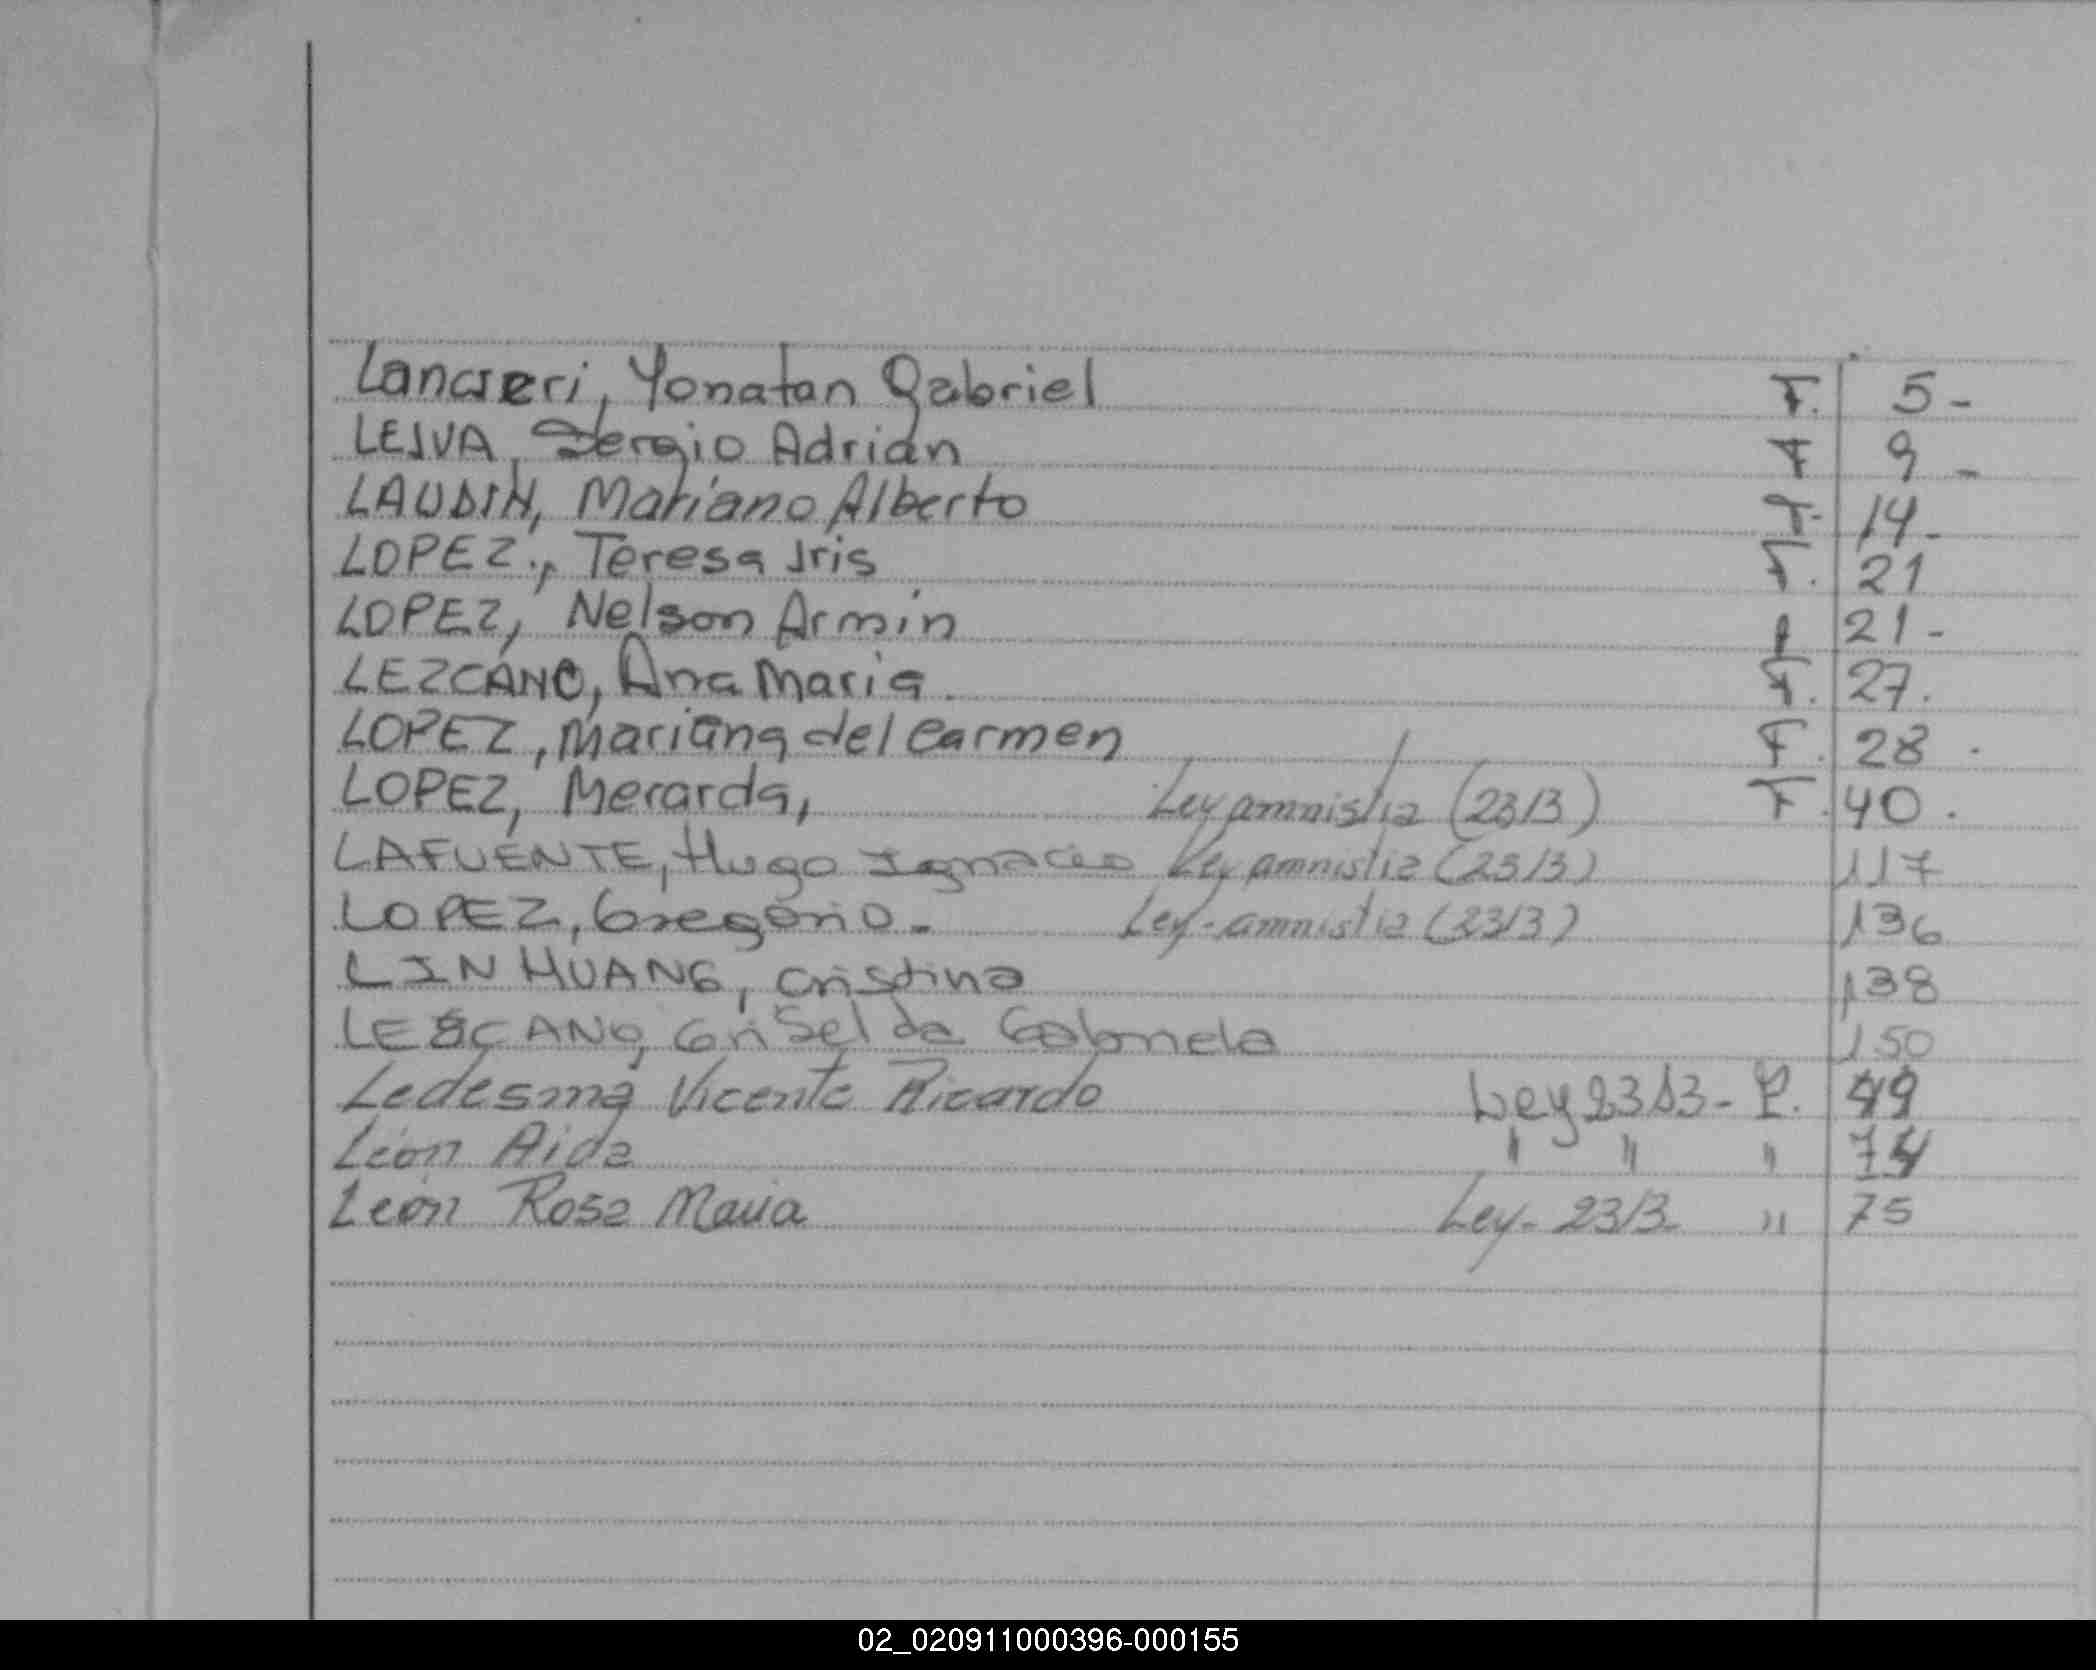 Lancieri, Yonatan Gabriel F. 5-
LEIVA, Sergio Adrián F 9-
LAUDIN, Mariano Alberto F. 14-
LOPEZ., Teresa Iris F. 21
LOPEZ, Nelson Armin F 21-
LEZCANO, Ana Maria. F. 27.
LOPEZ, Mariana del Carmen F. 28.
LOPEZ, Merarda, Ley amnistia (23/3) F. 40.
LAFUENTE, Hugo Ignacio Ley amnistia (23/3) 117
LOPEZ, Gregorio.- Ley-amnistia (23/3) 136
LIN HUANG, Cristina 138
LESCANO, Griselda Gabriela 150
Ledesma Vicente Ricardo Ley 2313- F. 49
León Aida " " " 74
León Rosa Maria Ley- 23/3- " 75
02_020911000396-000155